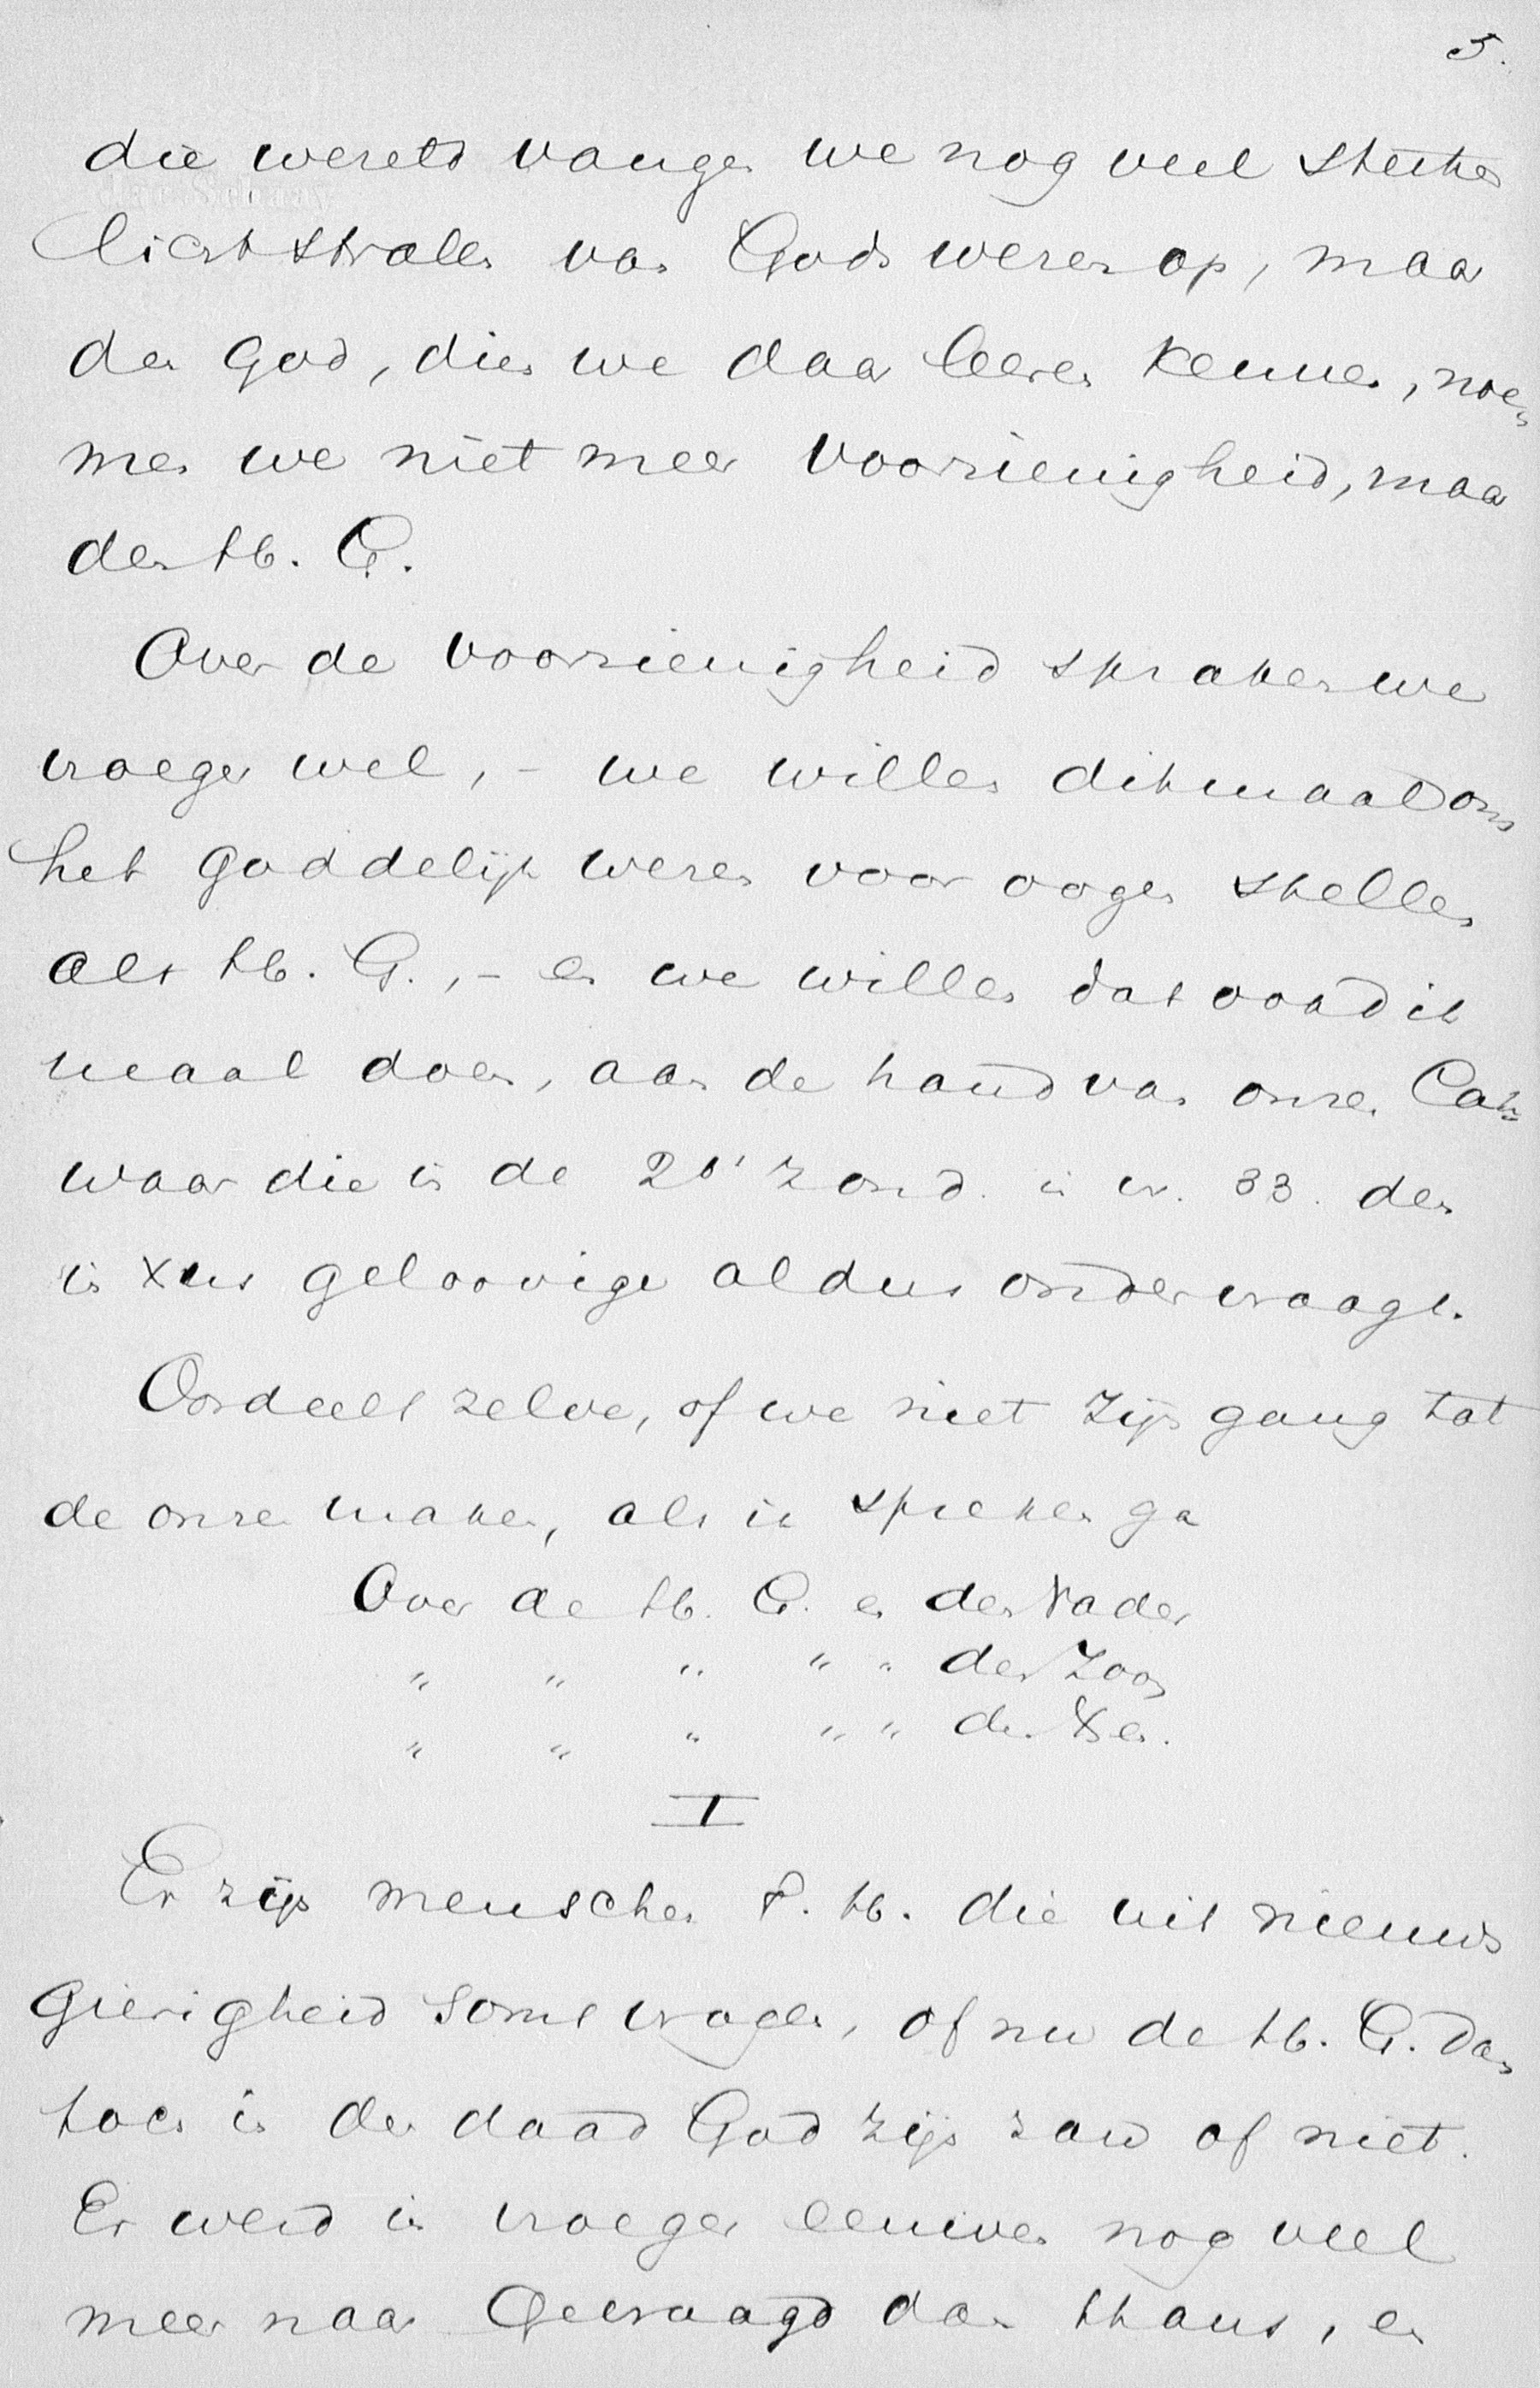 5.
die wereld vangen we nog veel sterker
lichtstralen van Gods wezen op, maar
den God, dien we daar leeren kennen, noe-
men we niet meer Voorzienigheid, maar
den H. G.
Over de Voorzienigheid spraken we
vroeger wel, - we willen ditmaal ons
het goddelijk wezen voor oogen stellen
als H. G., - en we willen dat ook dit
maal doen, aan de hand van onzen Cat.
waar die in de 20e Zond. in vr. 33. den
in Xtus geloovige aldus ondervraagt.
Oordeelt zelve, of we niet zijn gang tot
de onzen maken, als ik spreken ga
Over de H. G. en den Vader
" " " " " den Zoon
" " " " " den Xen.
I
Er zijn menschen G. H. die uit nieuws
gierigheid soms vragen, of nu de H. G. dan
toch in der daad God zijn zou of niet.
Er werd in vroeger eeuwen nog veel
meer naar gevraagd dan thans, en